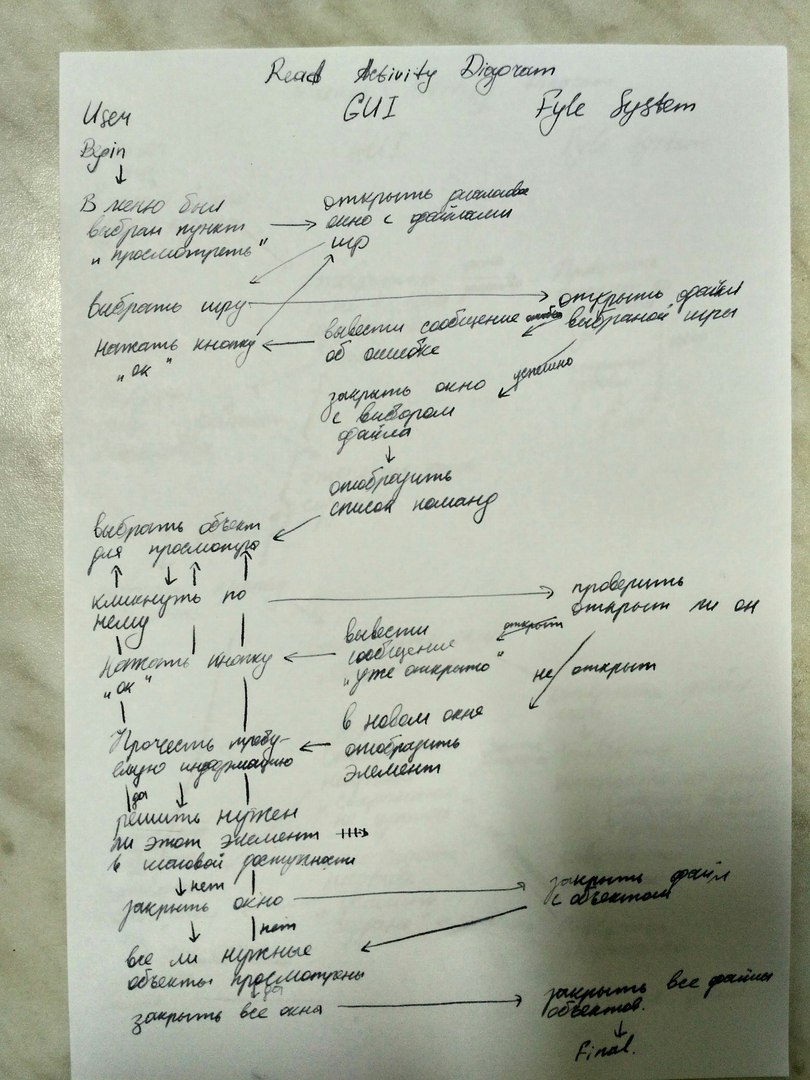 Read Activity Diagram
User GUI Fyle System
Begin
В меню был
выбран пункт
"просмотреть"
открыть диалогове
окно с файлами
игр
выбрать игру
открыть файл
выбраной игры
ошибка
нажать кнопку
"ок"
вывести сообщение
об ошибке
успешно
закрыть окно
с выбором
файла
отобразить
список команд
выбрать объект
для просмотра
кликнуть по
нему
проверить
открыт ли он
открыт
нажать кнопку
"ок"
вывести
сообщение
"уже открыто"
не открыт
в новом окне
отобразить
элемент
Прочесть требу-
емую информацию
да
решить нужен
ли этот элемент
в шаговой доступности
нет
закрыть окно
закрыть файл
с объектом
нет
все ли нужные
объекты просмотрены
да
закрыть все окна
закрыть все файлы
объектов.
Final.